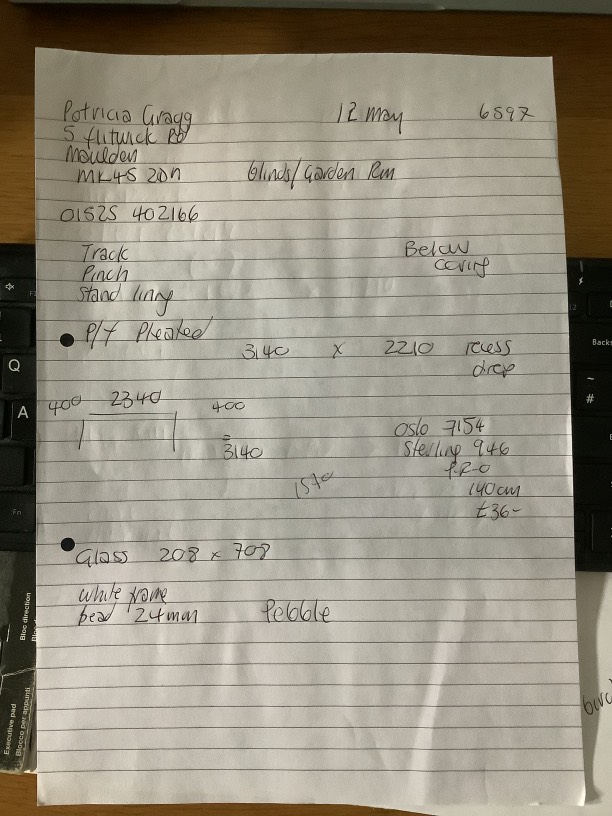 Patricia Gragg 12 may 6597
5 flitwick RD
Moulden
MK45 2DN blinds/Garden Rm
01525 402166
Track Below
Pinch coving
Stand lining
P/T Pleated
3140 x 2210 recess
drop
400 2340 400
=
3140
Oslo 7154
Sterling 946
F.R-O
1570
140cm
£36-
Glass 208 x 708
white frame
bead 24mm Pebble
Q
A
Fn
Back
~
#
Bloc direction
Executive pad
Blocco per appunti